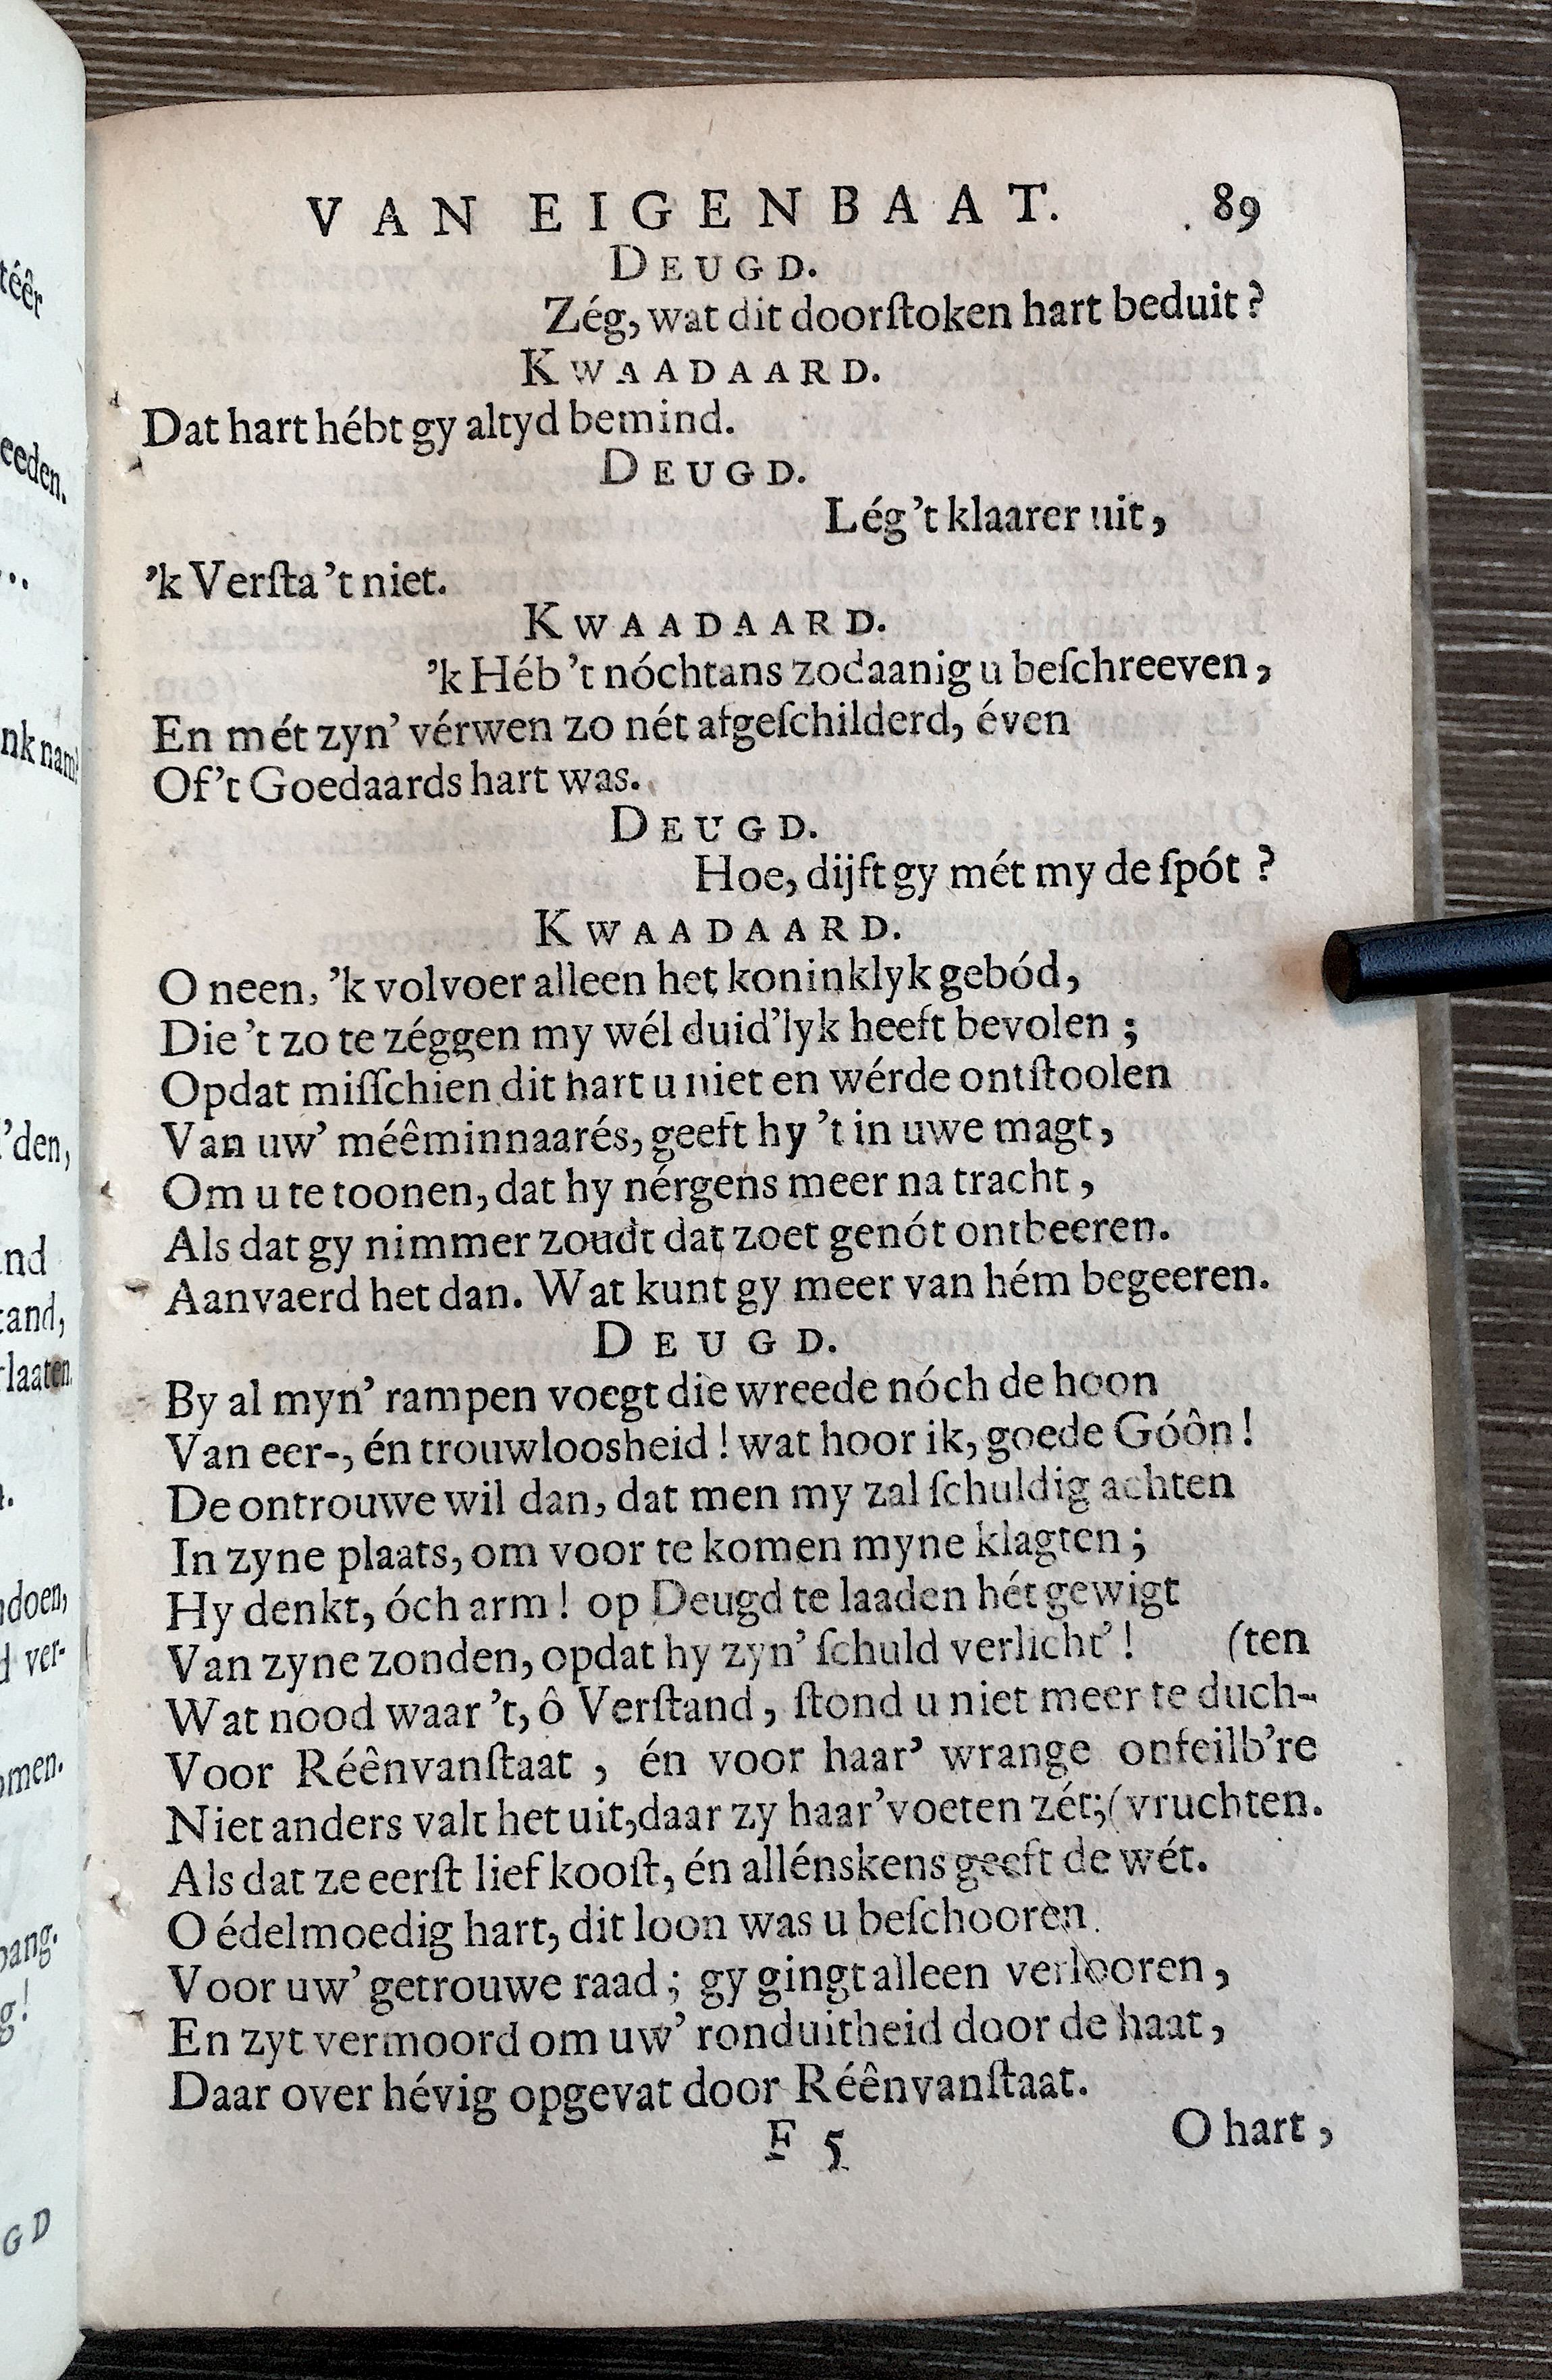 VAN EIGENBAAT. 89
DEUGD.
Zég, wat dit doorſtoken hart beduit?
KWAADAARD.
Dat hart hébt gy altyd bemind.
DEUGD.
Lég 't klaarer uit,
'k Verſta 't niet.
KWAADAARD.
'k Héb 't nóchtans zodaanig u beſchreeven,
En mét zyn' vérwen zo nét afgeſchilderd, éven
Of 't Goedaards hart was.
DEUGD.
Hoe, dijft gy mét my de ſpót?
KWAADAARD.
O neen, 'k volvoer alleen het koninklyk gebód,
Die 't zo te zéggen my wél duid'lyk heeft bevolen;
Opdat miſſchien dit hart u niet en wérde ontſtoolen
Van uw' méêminnaarés, geeft hy 't in uwe magt,
Om u te toonen, dat hy nérgens meer na tracht,
Als dat gy nimmer zoudt dat zoet genót ontbeeren.
Aanvaerd het dan. Wat kunt gy meer van hém begeeren.
DEUGD.
By al myn' rampen voegt die wreede nóch de hoon
Van eer-, én trouwloosheid! wat hoor ik, goede Góôn!
De ontrouwe wil dan, dat men my zal ſchuldig achten
In zyne plaats, om voor te komen myne klagten;
Hy denkt, óch arm! op Deugd te laaden hét gewigt
Van zyne zonden, opdat hy zyn' ſchuld verlicht'! (ten
Wat nood waar 't, ô Verſtand, ſtond u niet meer te duch-
Voor Réênvanſtaat, én voor haar' wrange onfeilb're
Niet anders valt het uit, daar zy haar' voeten zét; (vruchten.
Als dat ze eerſt lief kooſt, én allénskens geeft de wét.
O édelmoedig hart, dit loon was u beſchooren
Voor uw' getrouwe raad; gy gingt alleen verlooren,
En zyt vermoord om uw' ronduitheid door de haat,
Daar over hévig opgevat door Réênvanſtaat.
F 5 O hart,
téêr
eeden.
nk nam
'den,
laaten
doen,
ver-
omen.
pang.
g!
GD